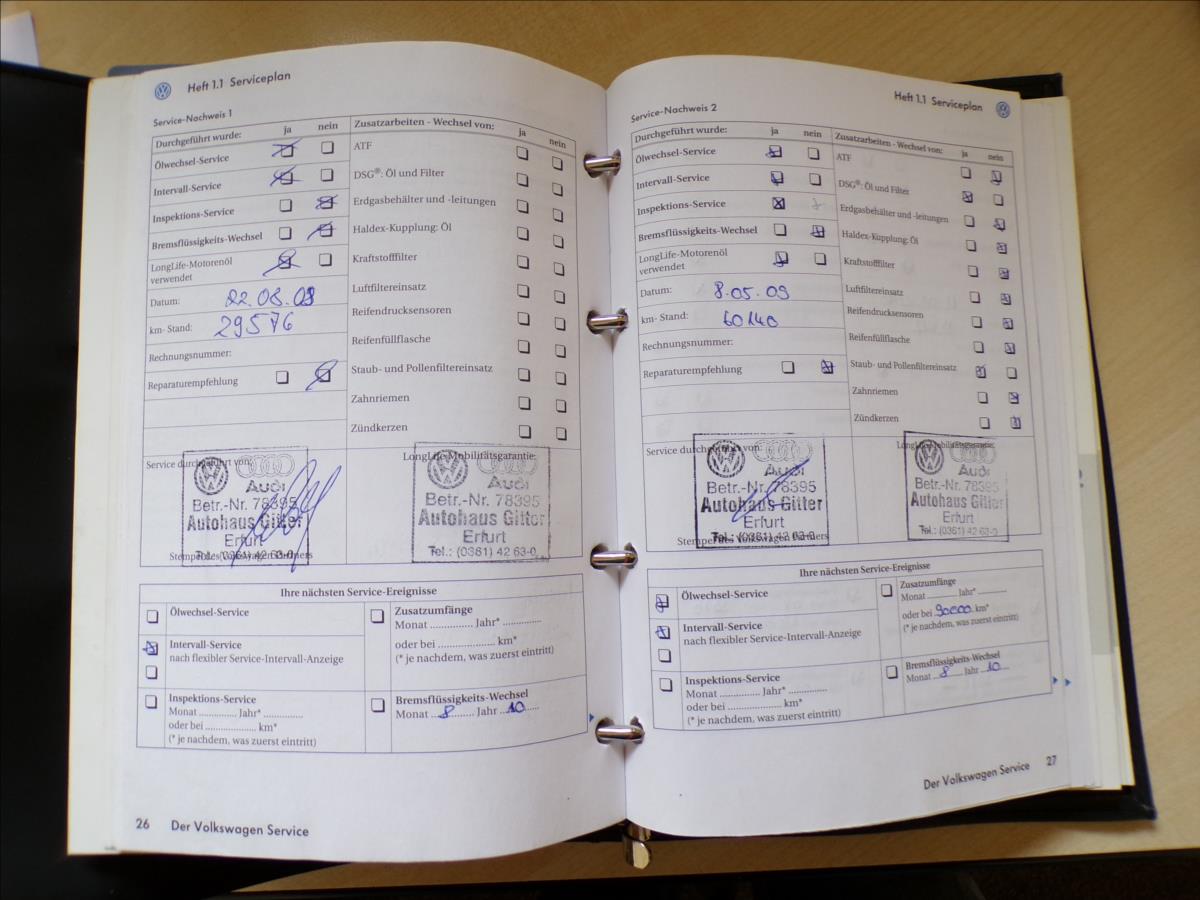 Heft 1.1 Serviceplan
Service-Nachweis 1
Durchgeführt wurde: ja nein
Ölwechsel-Service
Intervall-Service
Inspektions-Service
Bremsflüssigkeits-Wechsel
LongLife-Motorenöl
verwendet
Datum: 22.08.08
km- Stand: 29576
Rechnungsnummer:
Reparaturempfehlung
Zusatzarbeiten - Wechsel von: ja nein
ATF
DSG®: Öl und Filter
Erdgasbehälter und -leitungen
Haldex-Kupplung: Öl
Kraftstofffilter
Luftfiltereinsatz
Reifendrucksensoren
Reifenfüllflasche
Staub- und Pollenfiltereinsatz
Zahnriemen
Zündkerzen
Service durchgeführt von:
Audi
Betr.-Nr. 78395
Autohaus Gitter
Erfurt
Tel.: (0361) 42 63-0
Stempel des Volkswagen Partners
LongLife-Mobilitätsgarantie:
Audi
Betr.-Nr. 78395
Autohaus Gitter
Erfurt
Tel.: (0361) 42 63-0
Ihre nächsten Service-Ereignisse
Ölwechsel-Service
Intervall-Service
nach flexibler Service-Intervall-Anzeige
Inspektions-Service
Monat ............. Jahr* ..............
oder bei .................... km*
(* je nachdem, was zuerst eintritt)
Zusatzumfänge
Monat ............... Jahr* .............
oder bei ...................... km*
(* je nachdem, was zuerst eintritt)
Bremsflüssigkeits-Wechsel
Monat 8 Jahr 10
26 Der Volkswagen Service
Heft 1.1 Serviceplan
Service-Nachweis 2
Durchgeführt wurde: ja nein
Ölwechsel-Service
Intervall-Service
Inspektions-Service
Bremsflüssigkeits-Wechsel
LongLife-Motorenöl
verwendet
Datum: 8.05.09
km- Stand: 60140
Rechnungsnummer:
Reparaturempfehlung
Zusatzarbeiten - Wechsel von: ja nein
ATF
DSG®: Öl und Filter
Erdgasbehälter und -leitungen
Haldex-Kupplung: Öl
Kraftstofffilter
Luftfiltereinsatz
Reifendrucksensoren
Reifenfüllflasche
Staub- und Pollenfiltereinsatz
Zahnriemen
Zündkerzen
Service durchgeführt von:
Audi
Betr.-Nr. 78395
Autohaus Gitter
Erfurt
Tel.: (0361) 42 63-0
Stempel des Volkswagen Partners
LongLife-Mobilitätsgarantie:
Audi
Betr.-Nr. 78395
Autohaus Gitter
Erfurt
Tel.: (0361) 42 63-0
Ihre nächsten Service-Ereignisse
Ölwechsel-Service
Intervall-Service
nach flexibler Service-Intervall-Anzeige
Inspektions-Service
Monat ............. Jahr* .............
oder bei .................... km*
(* je nachdem, was zuerst eintritt)
Zusatzumfänge
Monat ............. Jahr* .............
oder bei 90000 km*
(* je nachdem, was zuerst eintritt)
Bremsflüssigkeits-Wechsel
Monat 8 Jahr 10
Der Volkswagen Service 27